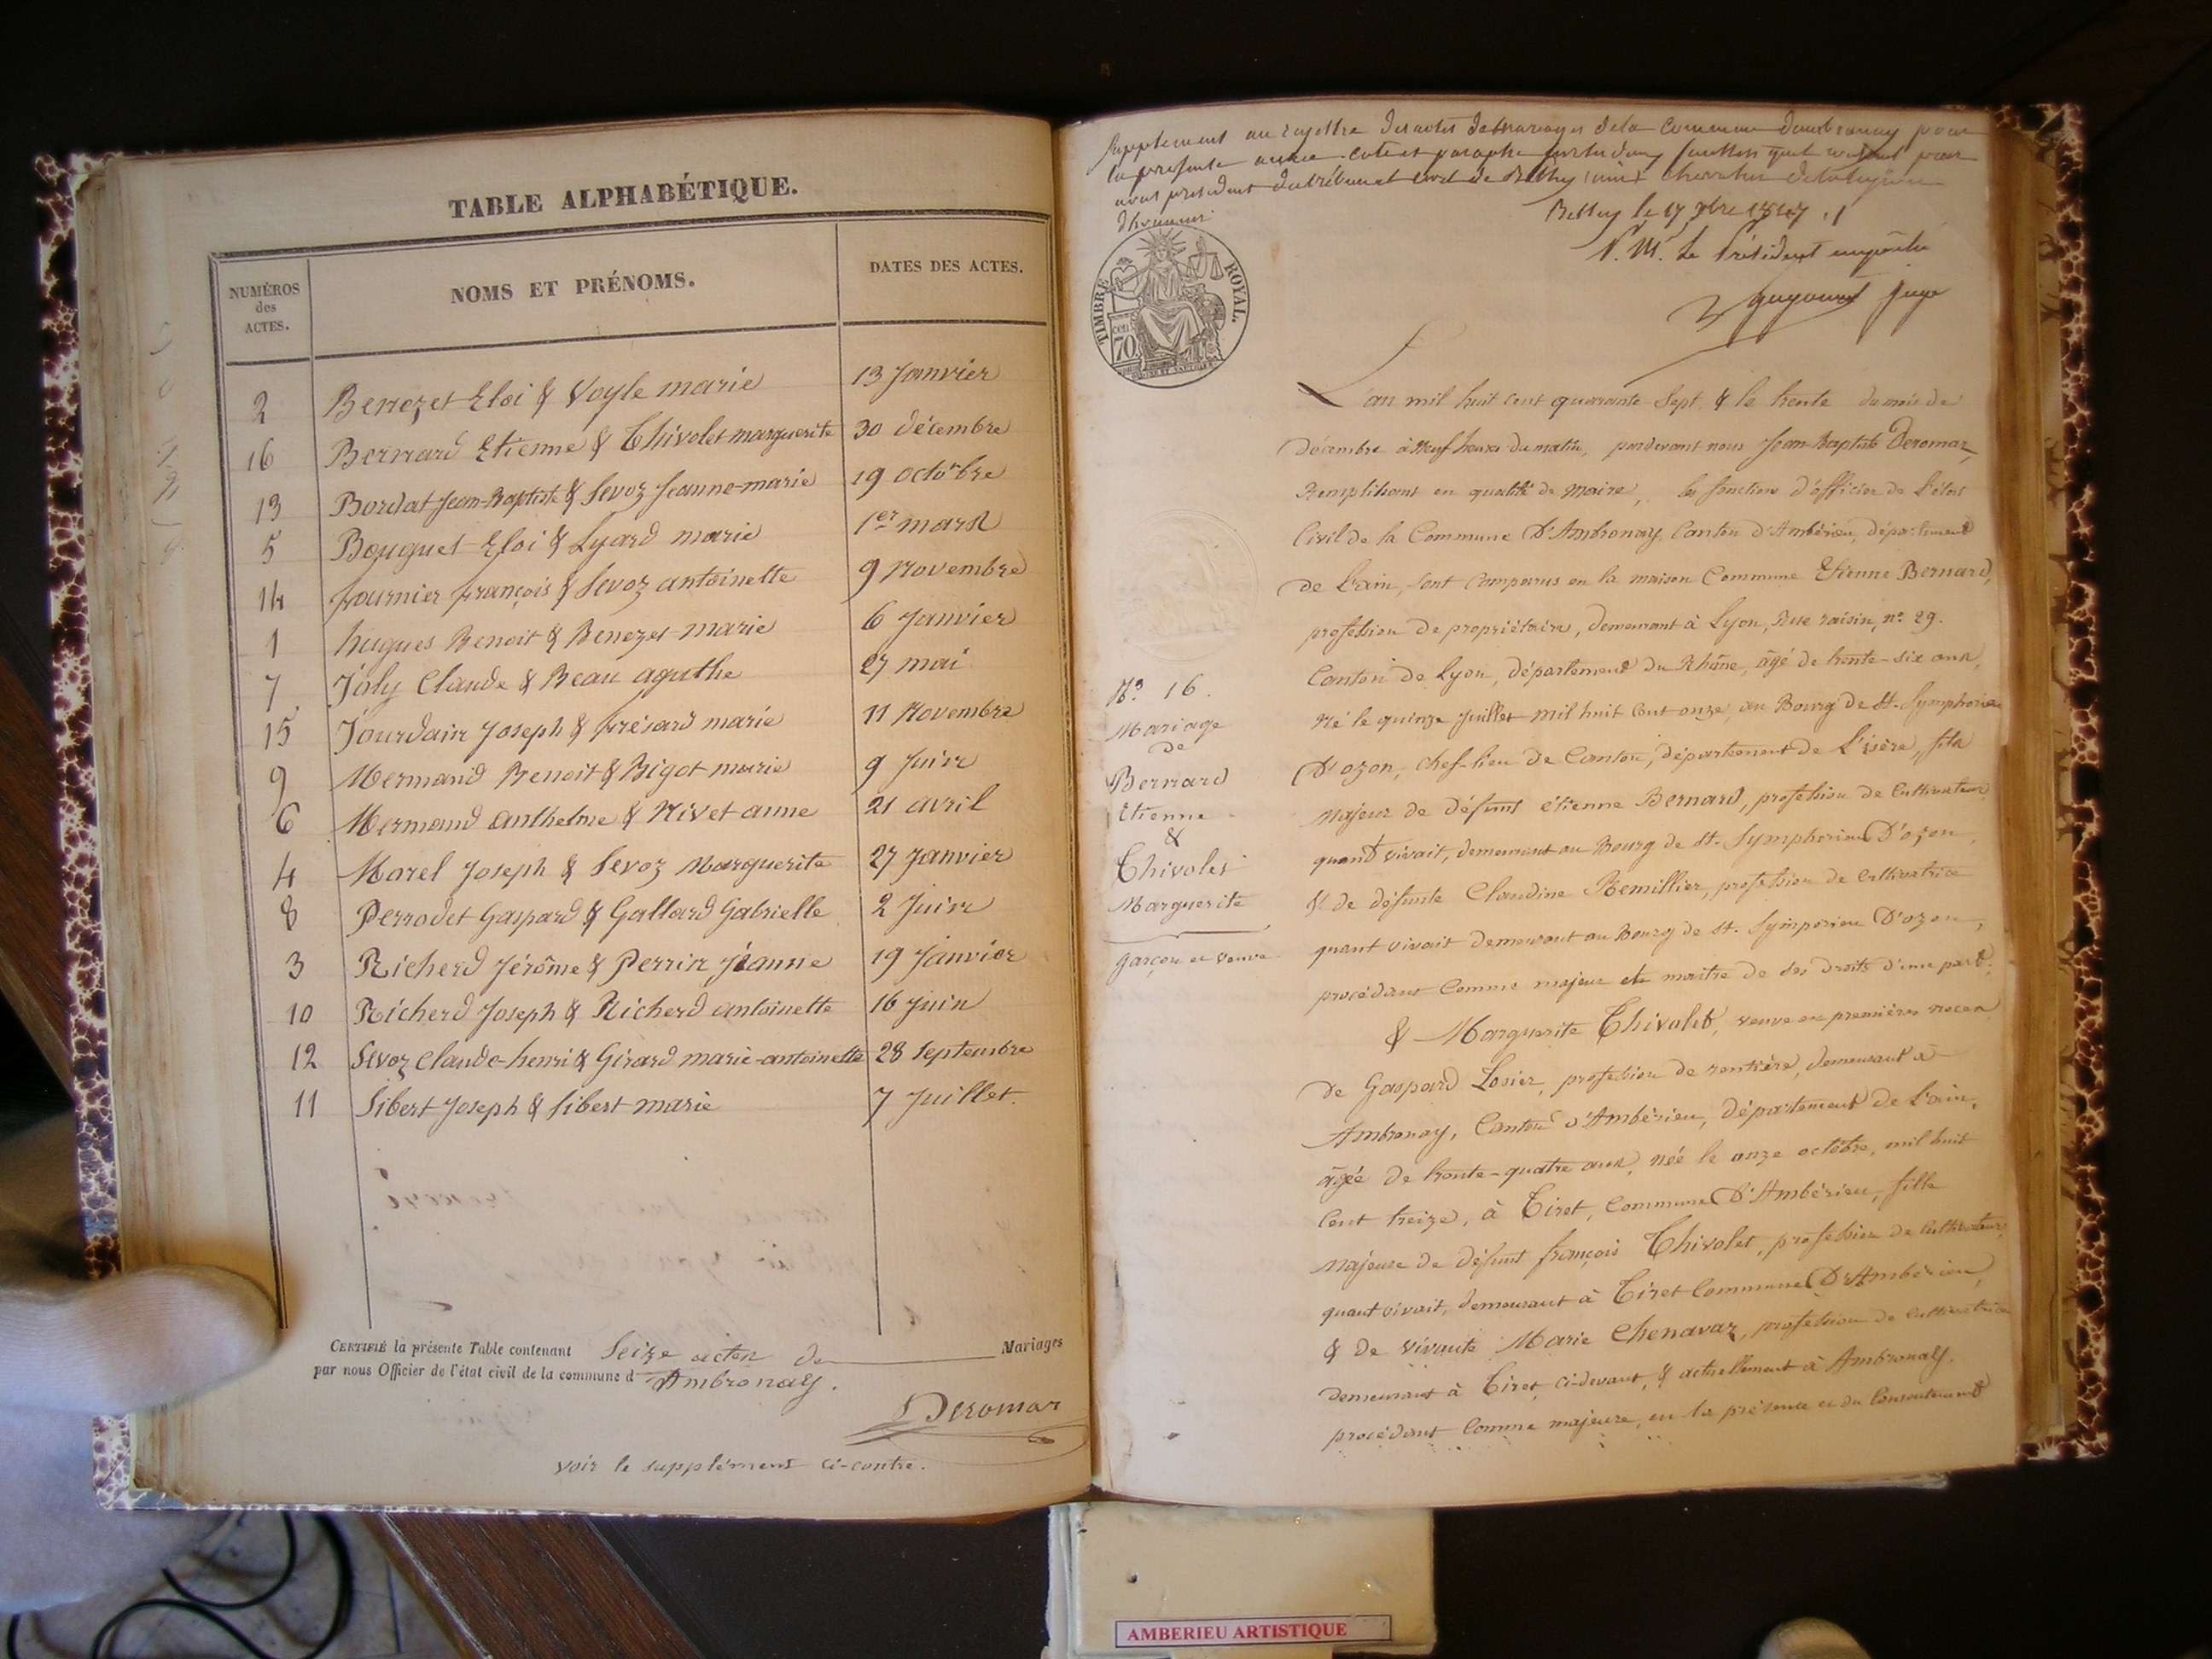 TABLE ALPHABÉTIQUE.
NUMÉROS
des
ACTES.
NOMS ET PRÉNOMS.
DATES DES ACTES.
2 Benezet Eloi & Voyle marie 13 Janvier
16 Bernard Etienne & Thivolet marguerite 30 décembre
13 Bordat Jean-Baptiste & Sevoz Jeanne-marie 19 octobre
5 Bouquet Eloi & Lyard marie 1er mars
14 fournier françois & Sevoz antoinette 9 Novembre
1 hugues Benoit & Benezet marie 6 Janvier
7 Joly Claude & Beau agathe 27 mai
15 Jourdain Joseph & frésard marie 11 Novembre
9 Mermand Benoit & Bigot marie 9 Juin
6 Mermand anthelme & Nivet anne 21 avril
4 Morel Joseph & Sevoz Marguerite 27 Janvier
8 Perrodet Gaspard & Gallard Gabrielle 2 Juin
3 Richerd Jérôme & Perrin Jeanne 19 Janvier
10 Richerd Joseph & Richerd antoinette 16 Juin
12 Sevoz Claude-henri & Girard marie-antoinette 28 Septembre
11 Sibert Joseph & Sibert marie 7 Juillet.
CERTIFIÉ la présente Table contenant Seize actes de Mariages
par nous Officier de l'état civil de la commune d'Ambronay.
Deromar
voir le supplément ci-contre.
Supplement au registre des actes de mariages de la commune d'ambronay pour
la presente année cote et paraphe
nous president du tribunal civil de Belley chevalier de la légion
d'honneur
Belley le 17 1847
P. M. Le Président empêché
juge
TIMBRE ROYAL.
70
L'an mil huit cent quarante Sept & le trente du mois de
décembre à Neuf heures du matin, pardevant nous Jean-Baptiste Deromar,
Remplissant en qualité de Maire, les fonctions d'officier de l'état
Civil de la Commune D'Ambronay, Canton d'Ambérieu, département
de L'ain, sont Comparus en la maison Commune Etienne Bernard,
profession de propriétaire, demeurant à Lyon, Rue raisin, n° 29.
Canton de Lyon, département du Rhône, âgé de trente-six ans,
Né le quinze Juillet mil huit Cent onze, au Bourg de St. Symphorien
D'ozon, chef-lieu de Canton, département de L'isère, fils
majeur de défunt étienne Bernard, profession de Cultivateur,
quant vivait, demeurant au Bourg de St. Symphorien D'ozon,
& de défunte Claudine Remillier, profession de Cultivatrice
quant vivait demeurant au Bourg de St. Symporien D'ozon,
procédant Comme majeur et maître de ses droits d'une part;
& Marguerite Thivolet, veuve en premières noces
de Gaspard Losier, profession de rentière, demeurant à
Ambronay, Canton d'Ambérieu, département de L'ain,
âgée de trente-quatre ans, née le onze octobre, mil huit
Cent treize, à Tiret, Commune D'Ambérieu, fille
majeure de défunt françois Thivolet, profession de Cultivateur,
quant vivait, demeurant à Tiret Commune D'Ambérieu,
& de vivante Marie Chenavaz, profession de Cultivatrice
demeurant à Tiret ci-devant, & actuellement à Ambronay,
procédant Comme majeure, en la présence et du Consentement
N° 16.
Mariage
de
Bernard
Etienne
&
Thivolet
Marguerite
garçon et veuve
AMBERIEU ARTISTIQUE